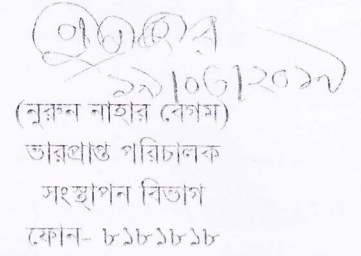 ১৯|০৩|২০১৭
(নুরুন নাহার বেগম)
ভারপ্রাপ্ত পরিচালক
সংস্থাপন বিভাগ
ফোন- ৮১৮১৮১৮